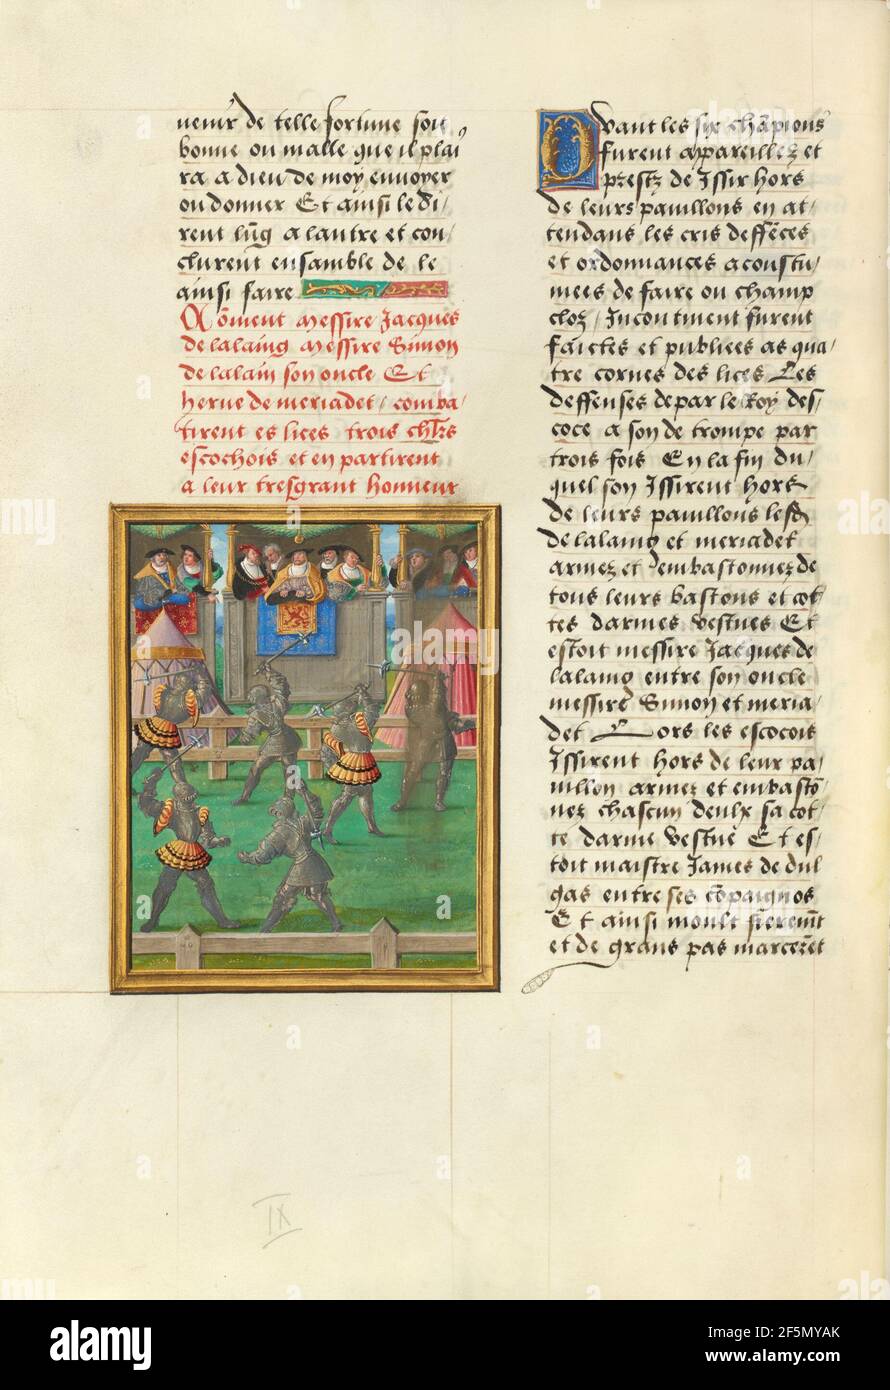 uenir de telle fortune soit
bonne ou malle que il plai
ra a dieu de moy enuoyer
ou donner Et ainsi le di/
rent lūg a lautre et con/
clurent ensamble de le
ainsi faire
Cōment messire Jacques
de lalaing messire Simon
de lalain son oncle Et
herue de meriadet comba/
tirent es lices trois chl̄rs
escochois et en partirent
a leur tresgrant honneur
Quant les six chāpions
furent apareillez et
prestz de Issir hors
de leurs pauillons en at/
tendans les cris deffēces
et ordonnances acoustu/
mees de faire ou champ
cloz / Incontinent furent
faictes et publiees as qua/
tre cornes des lices Les
deffenses de par le Roy des/
coce a son de trompe par
trois fois En la fin du/
quel son Issirent hors
de leurs pauillons lesd
de lalaing et meriadet
armez et embastonnez de
tous leurs bastons et cot/
tes darmes vestues Et
estoit messire Jacques de
lalaing entre son oncle
messire Simon et meria/
det Lors les escocois
Issirent hors de leur pa/
uillon armez et embastō/
nez chascun deulx sa cot/
te darme vestue Et es/
toit maistre James de dul
gas entre ses cōpaignos
Et ainsi moult fierem̄t
et de grans pas marcerēt
IX
alamy
Image ID: 2F5MYAK
www.alamy.com